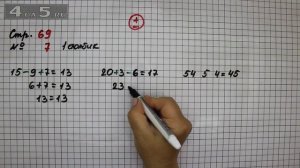 Стр. 69
№ 7 1 столбик
15-9+7=13
6+7=13
13=13
20+3-6=17
23
54 5 4=45